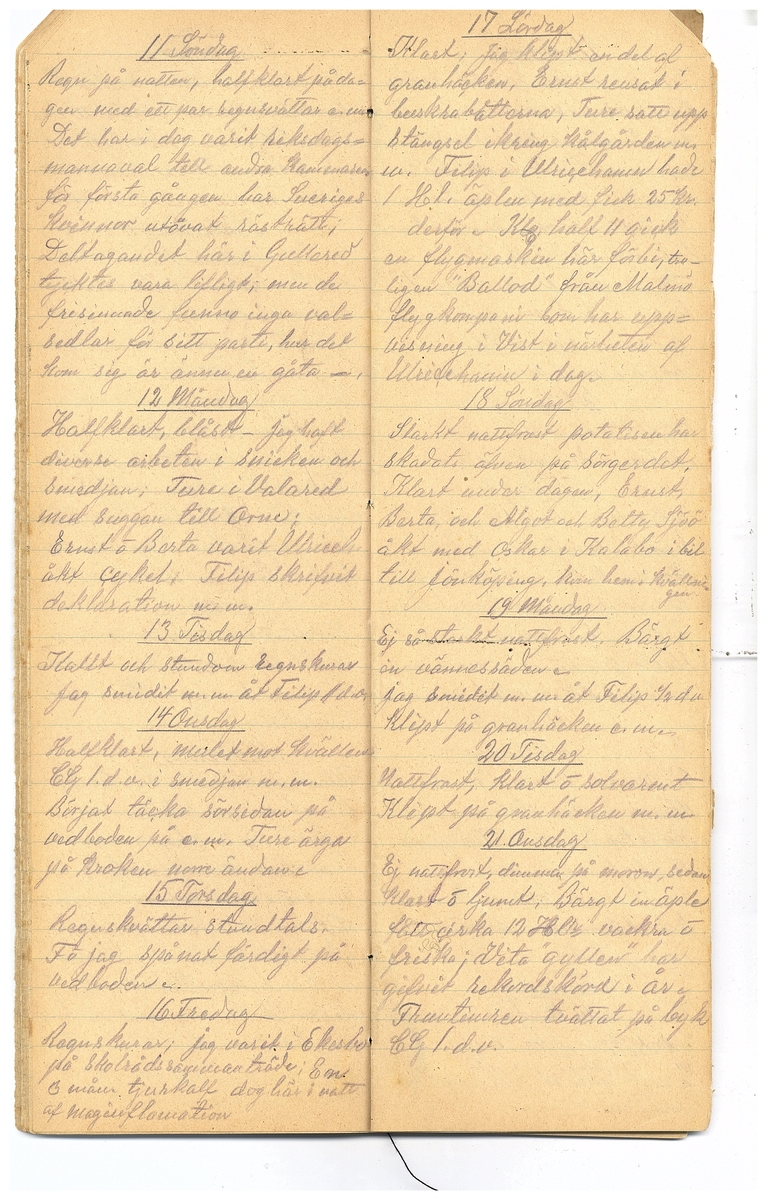 11 Söndag
Regn på natten, halfklart på da=
gen med ett par regnsvättar e.m.
Det har i dag varit reksdags=
mannaval till andra Kammaren
för första gången har Sveriges
Kvinnor utövat rösträtt;
Deltagandet här i Gullered
tycktes vara lifligt; men de
frisinnade funno inga val=
sedlar för sitt parti, hur det
kom sig är ännu en gåta —.
12 Måndag
Halfklart, blåst – jag haft
diverse arbeten i snicken och
smedjan; Ture i Valared
med suggan till Orne;
Ernst o Berta varit Ulriceh
åkt cykel; Filip skrifvit
deklaration m.m.
13 Tisdag
Kallt och stundom regnskurar
jag smedit m.m. åt Filip 1 d.v.
14 Onsdag
Halfklart, mulet mot kvällen
CG 1.d.v. i smedjan m.m.
Börjat täcka sörsidan på
vedboden på e.m. Ture ärga
på kroken norre ändan
15 Torsdag
Regnskvättar stundtals.
Få jag spånat färdigt på
vedboden
16 Fredag
Regnskurar; jag varit i Ekesbo
på skolrådssammanträde; En
3 mån. tjurkalf dog här i natt
af maginflamation
17 Lördag
Klart; jag klipt en del af
granhäcken, Ernst rensat i
buskrabattorna, Ture satt upp
stängsel ikring kålgården m
m. Filip i Ulricehamn hade
1 Hl. äplen med fick 25 kr.
derför. Kl. half 11 gick
en flygmaskin här förbi, tro-
ligen "Ballod" från Malmö
flygkompani som har upp=
visning i Vist i närheten af
Ulricehamn i dag.
18 Söndag
Starkt nattfrost potatisen har
skadats äfven på sörgerdet,
Klart under dagen, Ernst,
Berta, och Algot och Betty Sjöö
åkt med Oskar i Kalabo i bil
till jönköping, kom hem i kvällnin
gen
19 Måndag
Ej så starkt nattfrost. Bärgt
in vännessäden
jag smedit m.m. åt Filip 1/2 d.v.
Klipt på granhäcken e.m.
20 Tisdag
Nattfrost, klart o solvarmt
Klipt på granhäcken m.m
21 Onsdag
Ej nattfrost, dimma på moron, sedan
klart o ljumt, Bärgt in äple
cirka 12 Hl. vackra o
friska; Vita "gyllen" har
gifvit rekordskörd i år
tvättat på byk
CG 1.d.v.